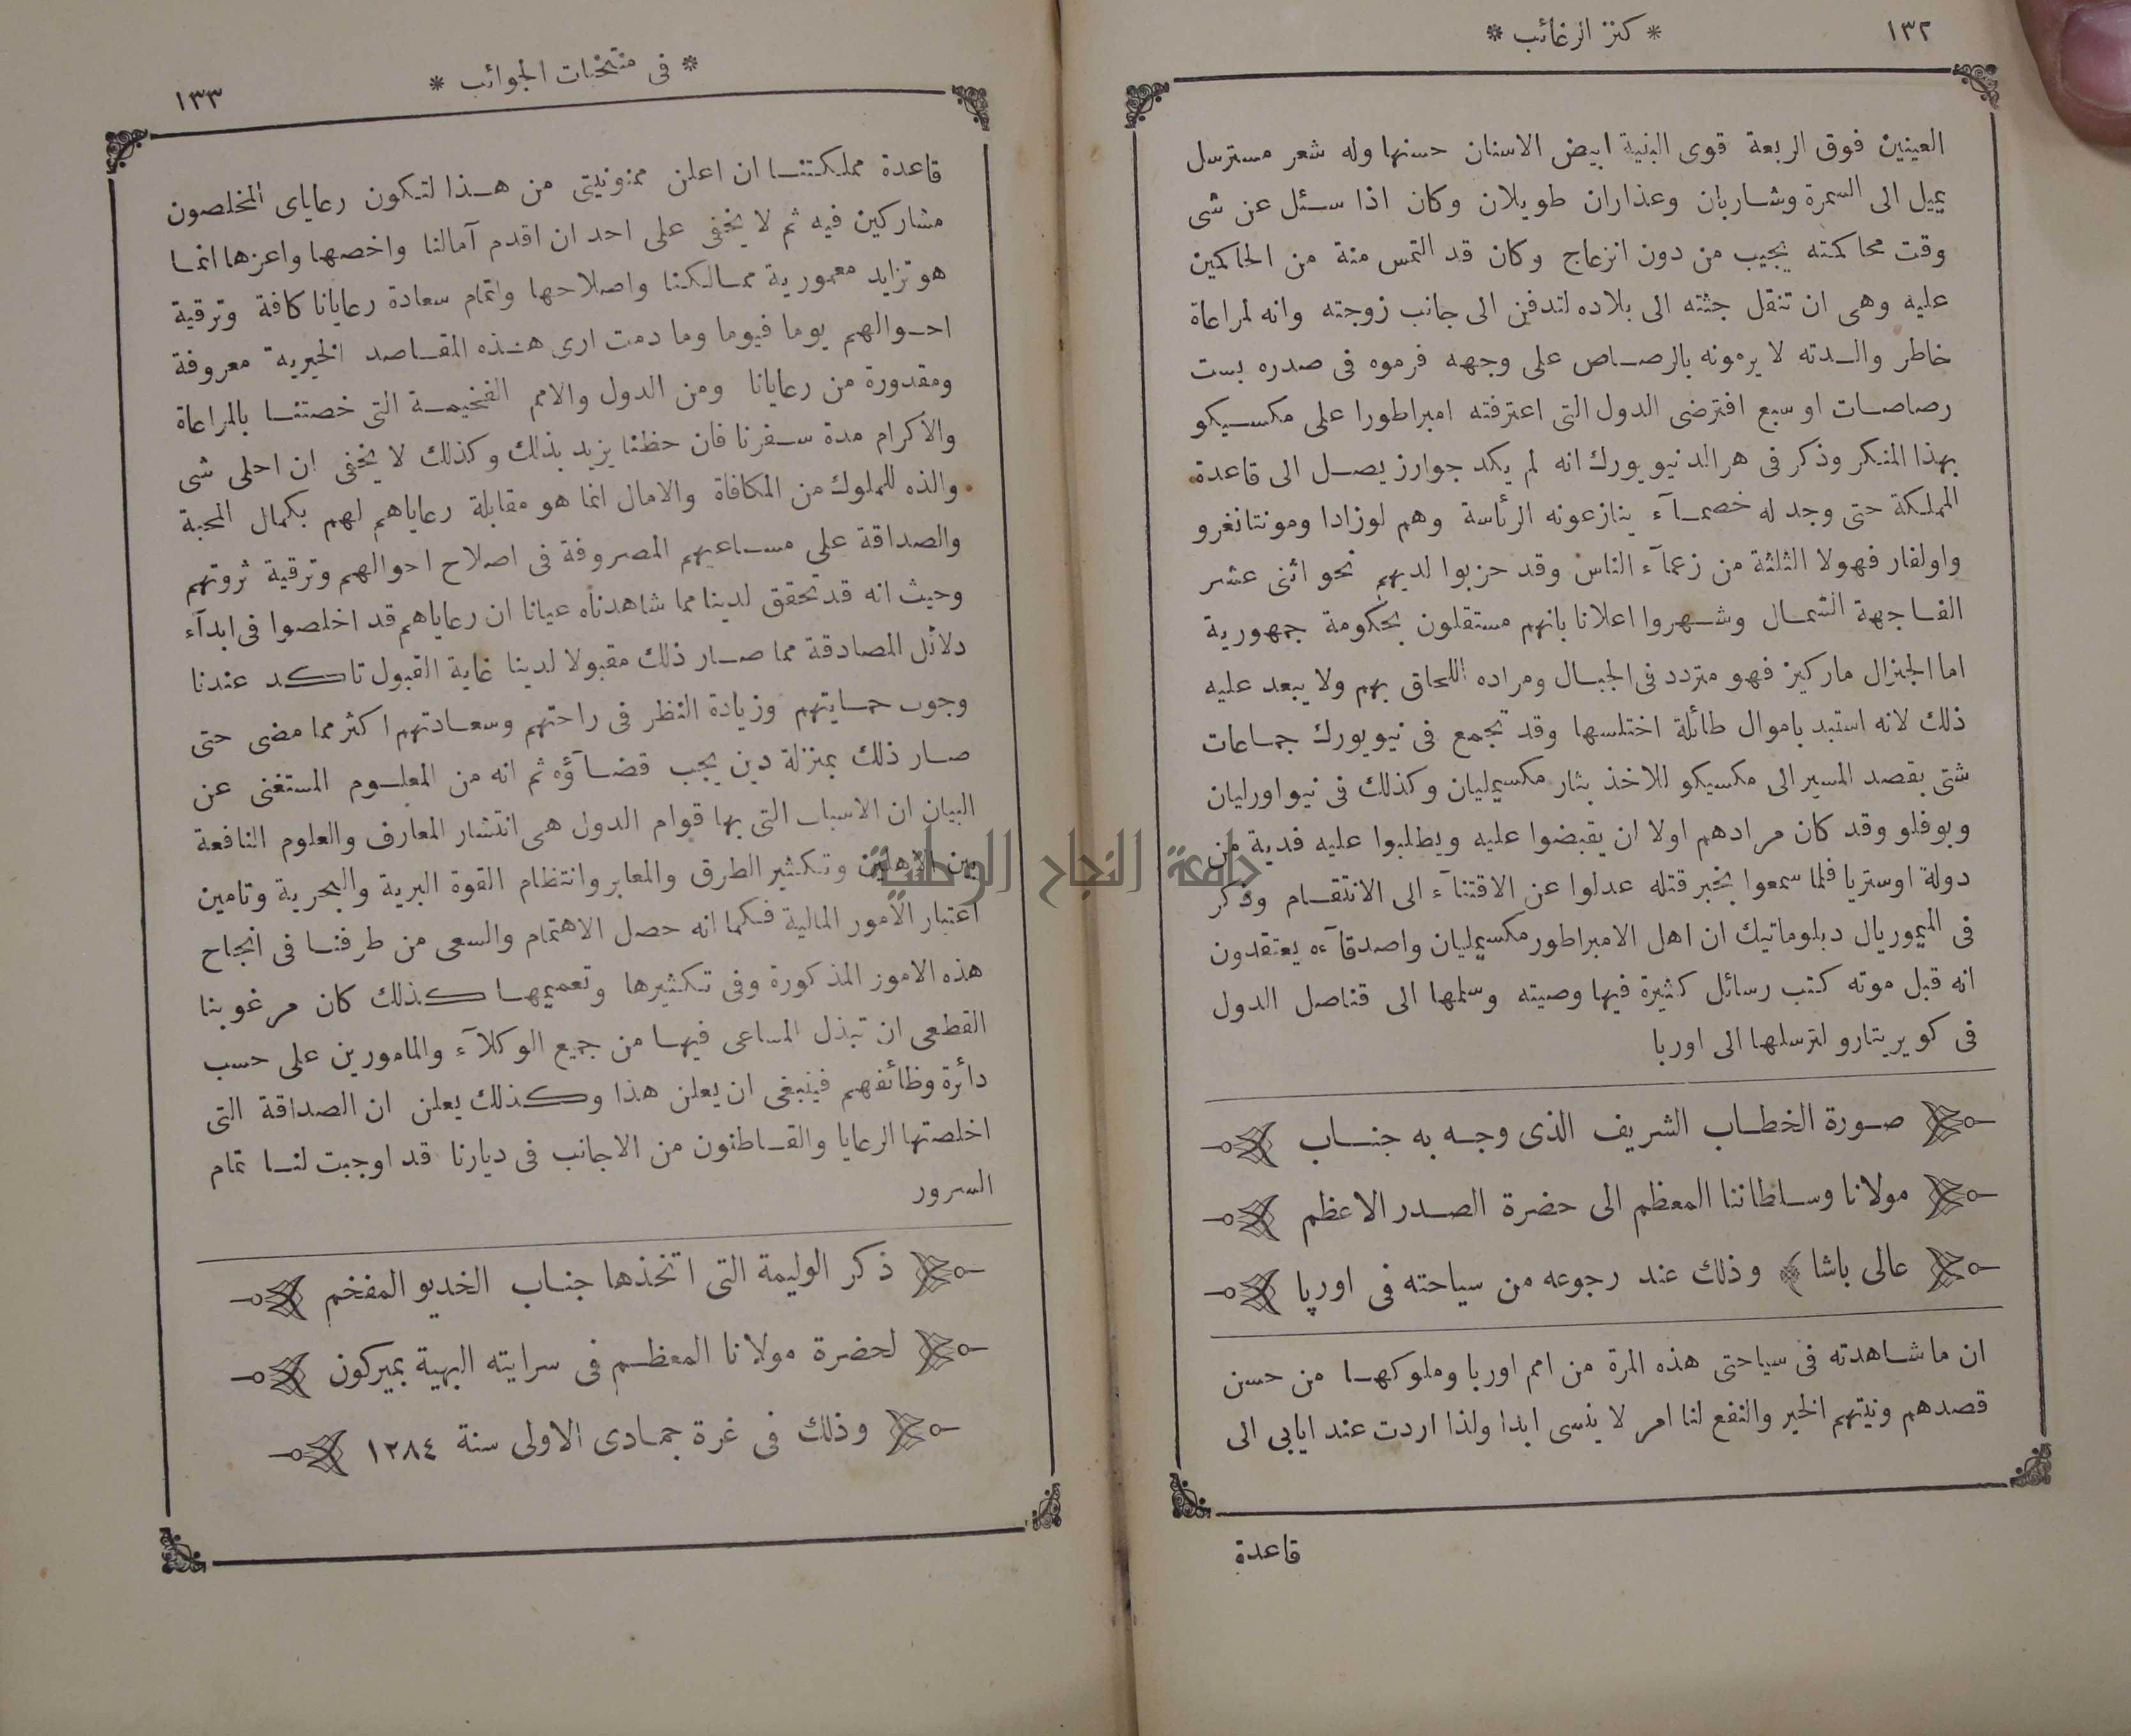 ١٣٢
* كنز الرغائب *
العينين فوق الربعة قوى البنية ابيض الاسنان حسنها وله شعر مسترسل
يميل الى السمرة وشاربان وعذاران طويلان وكان اذا سئل عن شى
وقت محاكمته يجيب من دون انزعاج وكان قد التمس منة من الحاكمين
عليه وهى ان تنقل جثته الى بلاده لتدفن الى جانب زوجته وانه لمراعاة
خاطر والدته لا يرمونه بالرصاص على وجهه فرموه فى صدره بست
رصاصات او سبع افترضى الدول التى اعترفته امبراطورا على مكسيكو
بهذا المنكر وذكر فى هرالد نيويورك انه لم يكد جوارز يصل الى قاعدة
المملكة حتى وجد له خصمآء ينازعونه الرئاسة وهم لوزادا ومونتانغرو
واولفار فهولا الثلثة من زعمآء الناس وقد حزبوا لديهم نحو اثنى عشر
الفا جهة الشمال وشهروا اعلانا بانهم مستقلون بحكومة جمهورية
اما الجنرال ماركيز فهو متردد فى الجبال ومراده اللحاق بهم ولا يبعد عليه
ذلك لانه استبد باموال طائلة اختلسها وقد تجمع فى نيويورك جماعات
شتى بقصد المسير الى مكسيكو للاخذ بثار مكسيمليان وكذلك فى نيو اورليان
وبوفلو وقد كان مرادهم اولا ان يقبضوا عليه ويطلبوا عليه فدية من
دولة اوستريا فلما سمعوا بخبر قتله عدلوا عن الاقتنآء الى الانتقام وذكر
فى الميموريال دبلوماتيك ان اهل الامبراطور مكسيمليان واصدقآءه يعتقدون
انه قبل موته كتب رسائل كثيرة فيها وصيته وسلمها الى قناصل الدول
فى كويريتارو لترسلها الى اوربا
صورة الخطاب الشريف الذى وجه به جناب
مولانا وسلطاننا المعظم الى حضرة الصدر الاعظم
عالى باشا ﴾ وذلك عند رجوعه من سياحته فى اورپا
ان ما شاهدته فى سياحتى هذه المرة من امم اوربا وملوكها من حسن
قصدهم ونيتهم الخير والنفع لنا امر لا ينسى ابدا ولذا اردت عند ايابى الى
قاعدة
* فى منتخبات الجوائب *
١٣٣
قاعدة مملكتنا ان اعلن ممنونيتى من هذا لتكون رعاياى المخلصون
مشاركين فيه ثم لا يخفى على احد ان اقدم آمالنا واخصها واعزها انما
هو تزايد معمورية ممالكنا واصلاحها واتمام سعادة رعايانا كافة وترقية
احوالهم يوما فيوما وما دمت ارى هذه المقاصد الخيرية معروفة
ومقدورة من رعايانا ومن الدول والامم الفخيمة التى خصتنا بالمراعاة
والاكرام مدة سفرنا فان حظنا يزيد بذلك وكذلك لا يخفى ان احلى شى
والذه للملوك من المكافاة والامال انما هو مقابلة رعاياهم لهم بكمال المحبة
والصداقة على مساعيهم المصروفة فى اصلاح احوالهم وترقية ثروتهم
وحيث انه قد تحقق لدينا مما شاهدناه عيانا ان رعاياهم قد اخلصوا فى ابدآء
دلائل المصادقة مما صار ذلك مقبولا لدينا غاية القبول تاكد عندنا
وجوب حمايتهم وزيادة النظر فى راحتهم وسعادتهم اكثر مما مضى حتى
صار ذلك بمنزلة دين يجب قضآؤه ثم انه من المعلوم المستغنى عن
البيان ان الاسباب التى بها قوام الدول هى انتشار المعارف والعلوم النافعة
بين الاهلين وتكثير الطرق والمعابر وانتظام القوة البرية والبحرية وتامين
اعتبار الامور المالية فكما انه حصل الاهتمام والسعى من طرفنا فى انجاح
هذه الامور المذكورة وفى تكثيرها وتعميمها كذلك كان مرغوبنا
القطعى ان تبذل المساعى فيها من جميع الوكلآء والمامورين على حسب
دائرة وظائفهم فينبغى ان يعلن هذا وكذلك يعلن ان الصداقة التى
اخلصتها الرعايا والقاطنون من الاجانب فى ديارنا قد اوجبت لنا تمام
السرور
ذكر الوليمة التى اتخذها جناب الخديو المفخم
لحضرة مولانا المعظم فى سرايته البهية بميركون
وذلك فى غرة جمادى الاولى سنة ١٢٨٤
جامعة النجاح الوطنية